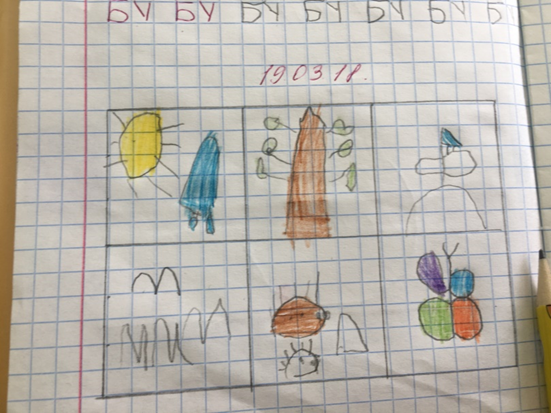 БУ БУ БУ БУ БУ БУ Б
19 03 18.